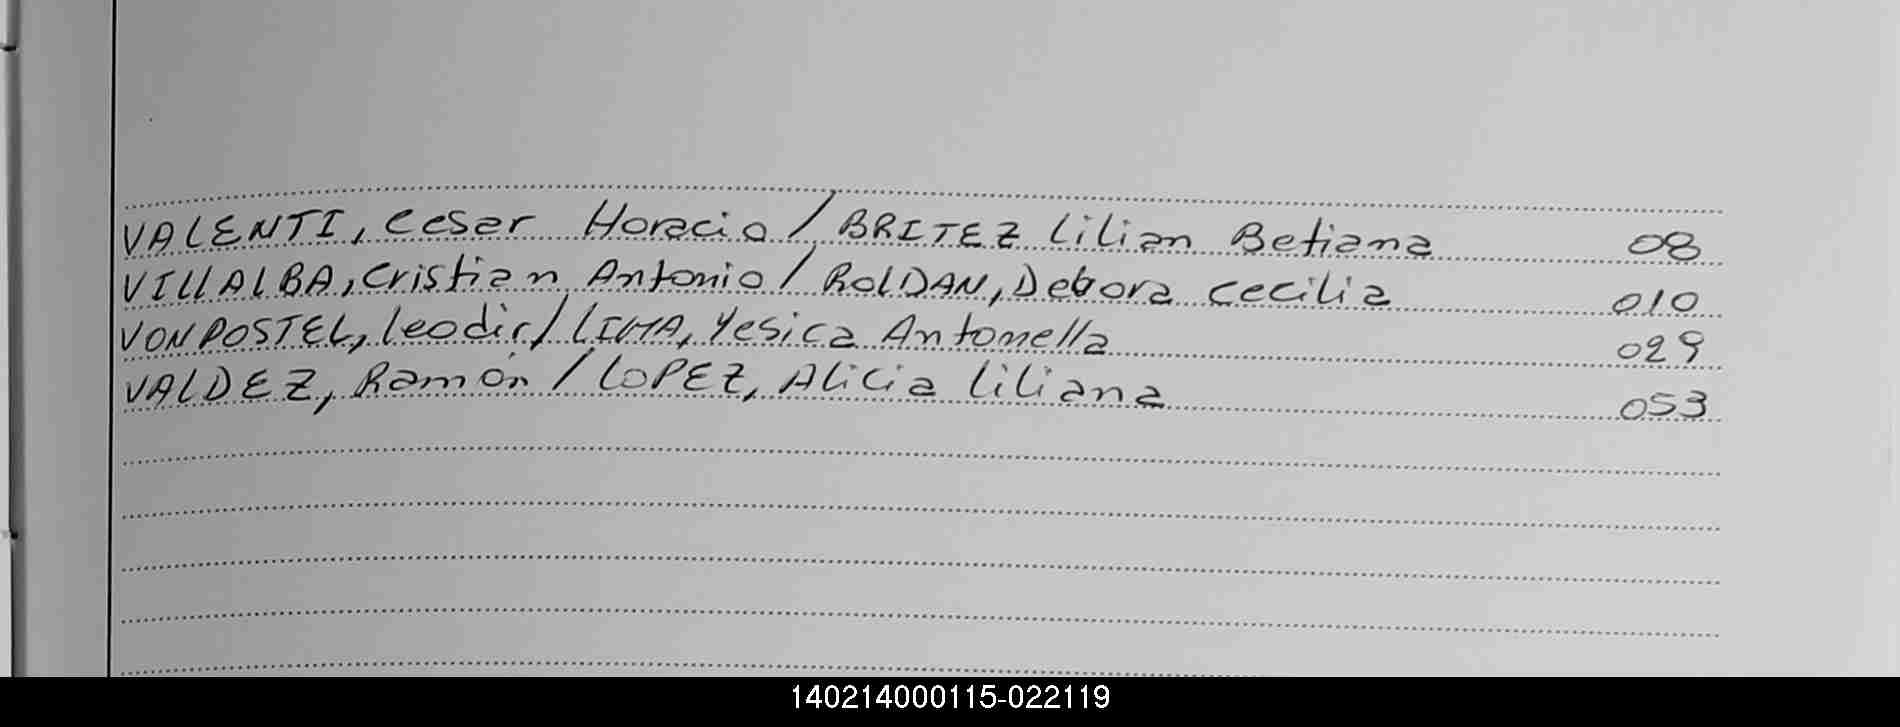 VALENTI, Cesar Horacio / BRITEZ Lilian Betiana 08
VILLALBA, Cristian Antonio / ROLDAN, Debora Cecilia 010
VONPOSTEL, Leodir / LIMA, Yesica Antonella 029
VALDEZ, Ramón / LOPEZ, Alicia Liliana 053
140214000115-022119